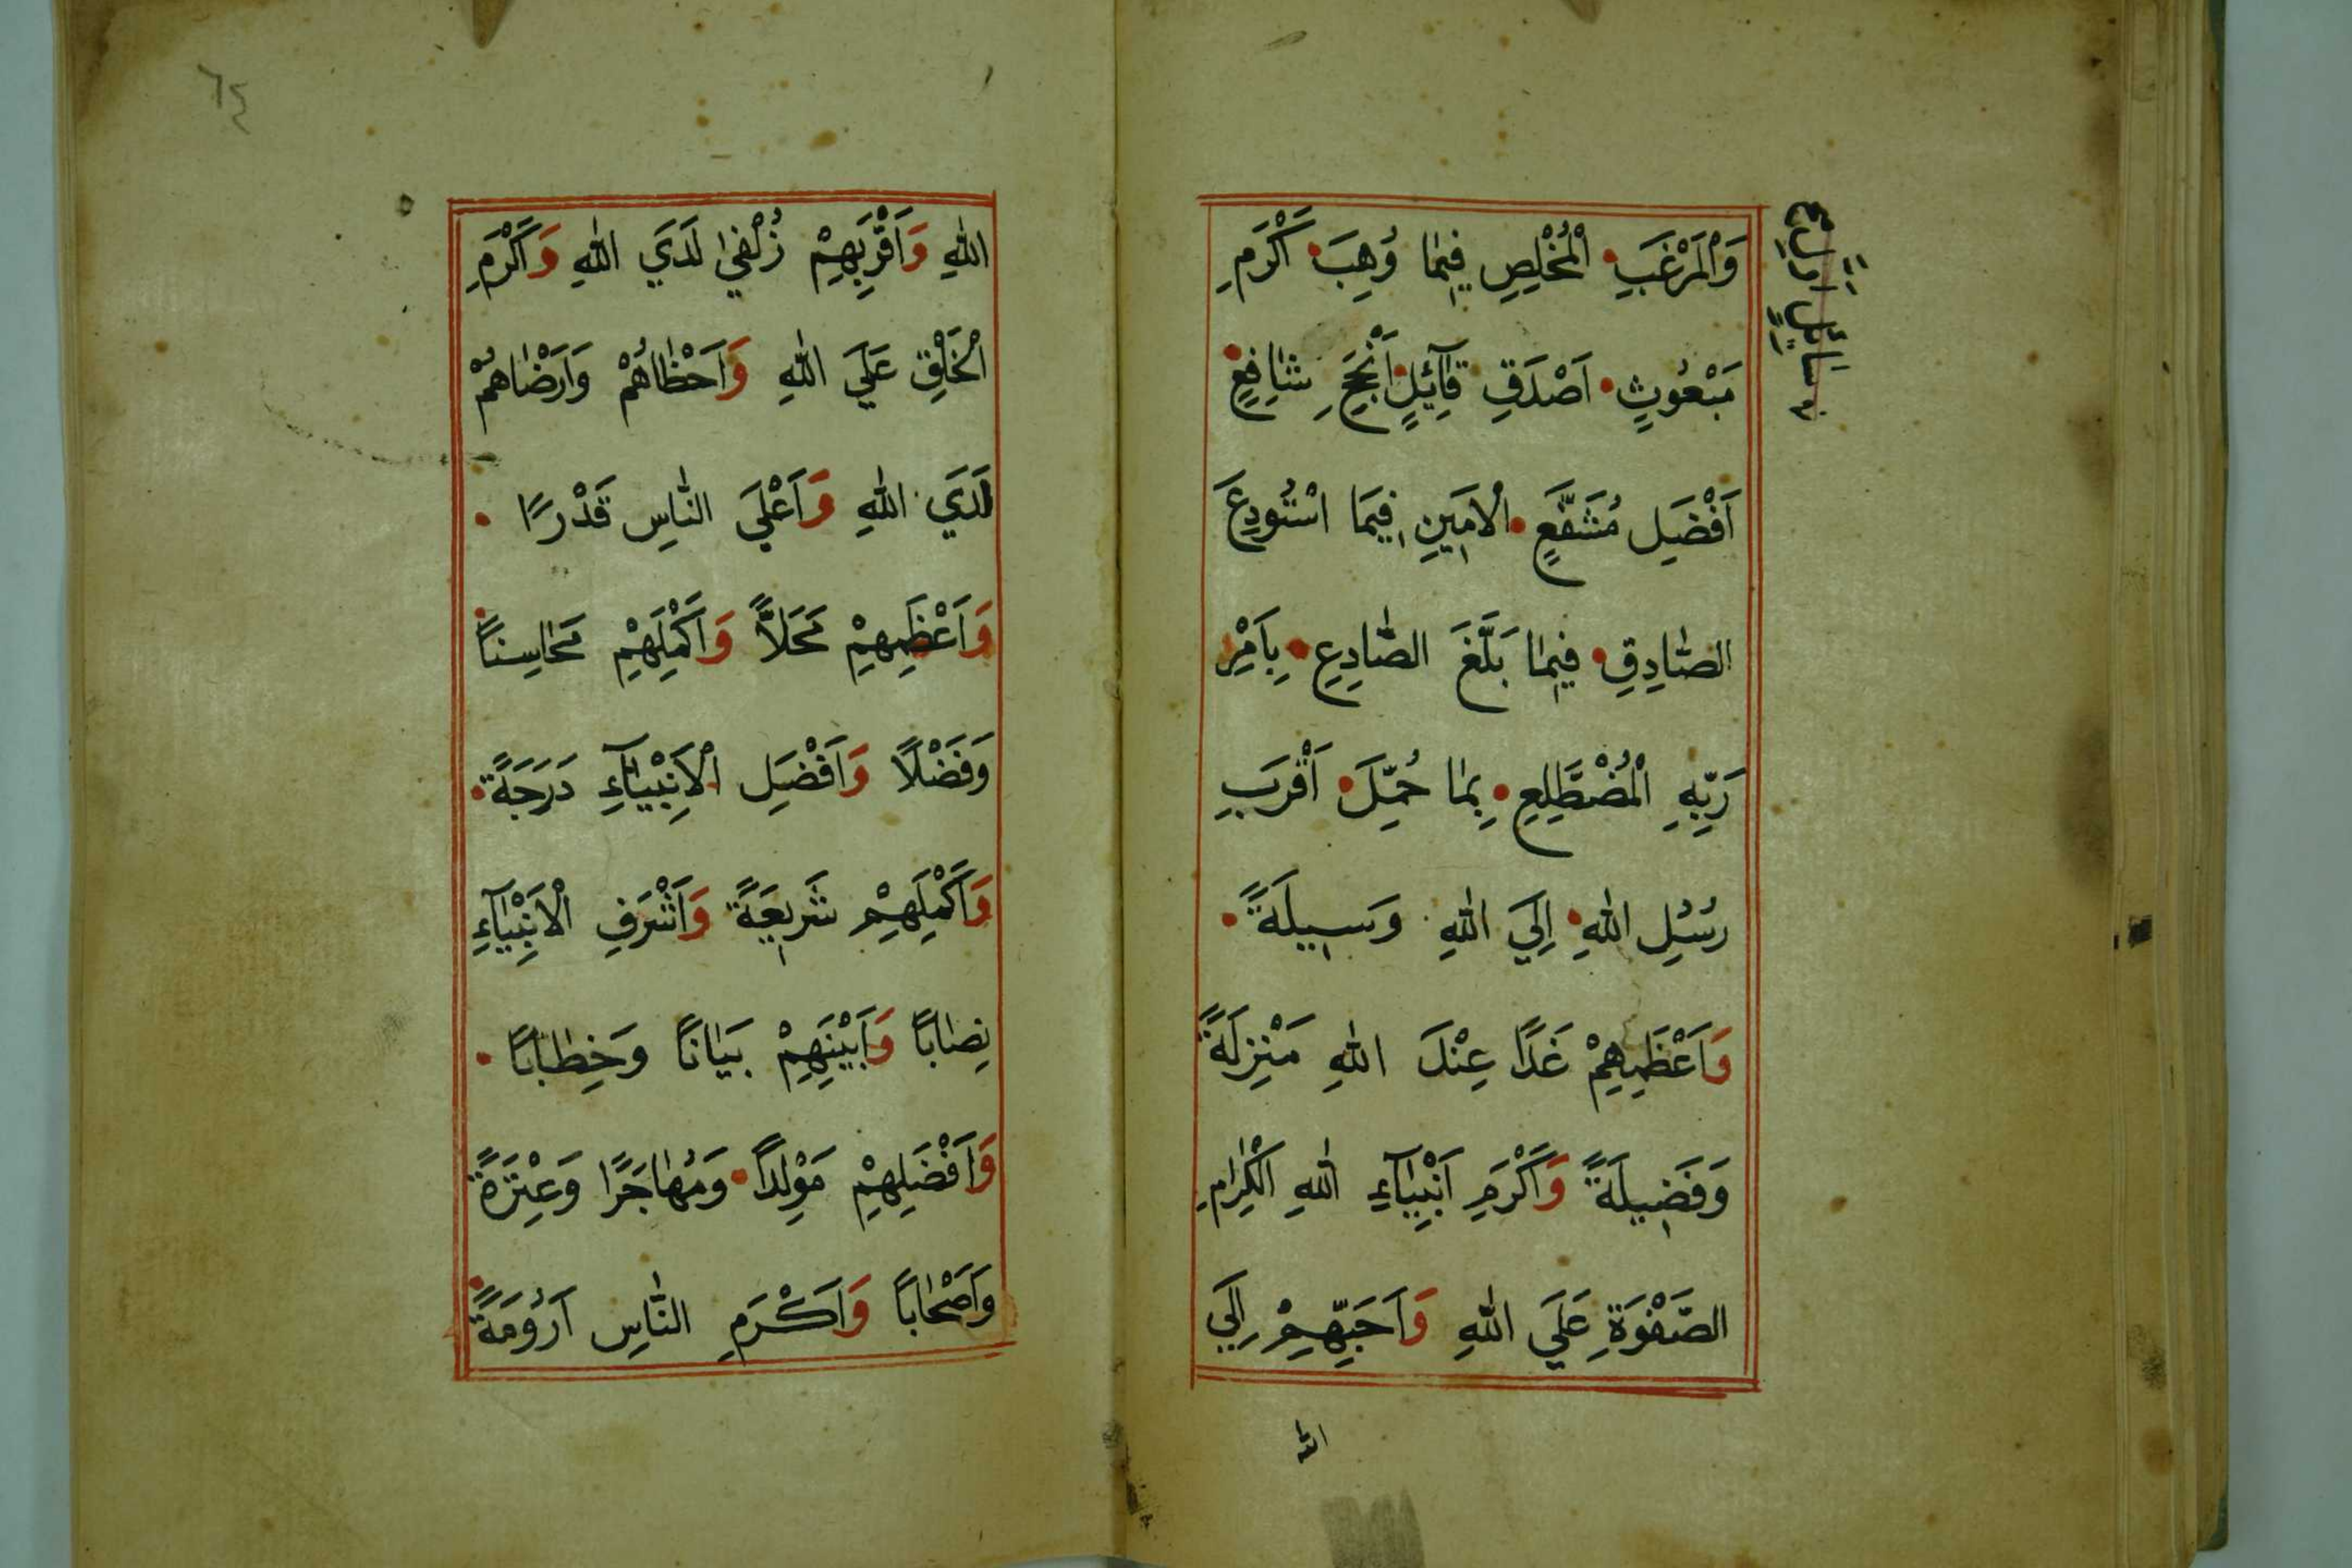 وَالْمَرْغَبِ الْمُخْلِصِ فِيمَا وُهِبَ اَكْرَمِ
مَبْعُوثٍ اَصْدَقِ قَآئِلٍ اَنْجَحِ شَافِعٍ
اَفْضَلِ مُشَفَّعٍ الْاَمِينِ فِيمَا اسْتُودِعَ
الصَّادِقِ فِيمَا بَلَّغَ الصَّادِعِ بِاَمْرِ
رَبِّهِ الْمُضْطَلِعِ بِمَا حُمِّلَ اَقْرَبِ
رُسُلِ اللهِ اِلَي اللهِ وَسِيلَةً
وَاَعْظَمِهِمْ غَدًا عِنْدَ اللهِ مَنْزِلَةً
وَفَضِيلَةً وَاَكْرَمِ اَنْبِيَآءِ اللهِ الْكِرَامِ
الصَّفْوَةِ عَلَي اللهِ وَاَحَبِّهِمْ اِلَي
الله
اللهِ وَاَقْرَبِهِمْ زُلْفَي لَدَي اللهِ وَاَكْرَمِ
الْخَلْقِ عَلَي اللهِ وَاَحْظَاهُمْ وَاَرْضَاهُمْ
لَدَي اللهِ وَاَعْلَي النَّاسِ قَدْرًا
وَاَعْظَمِهِمْ مَحَلًّا وَاَكْمَلِهِمْ مَحَاسِنًا
وَفَضْلًا وَاَفْضَلِ الْاَنْبِيَآءِ دَرَجَةً
وَاَكْمَلِهِمْ شَرِيعَةً وَاَشْرَفِ الْاَنْبِيَآءِ
نِصَابًا وَاَبْيَنِهِمْ بَيَانًا وَخِطَابًا
وَاَفْضَلِهِمْ مَوْلِدًا وَمُهَاجَرًا وَعِتْرَةً
وَاَصْحَابًا وَاَكْرَمِ النَّاسِ اَرُومَةً
٦٤